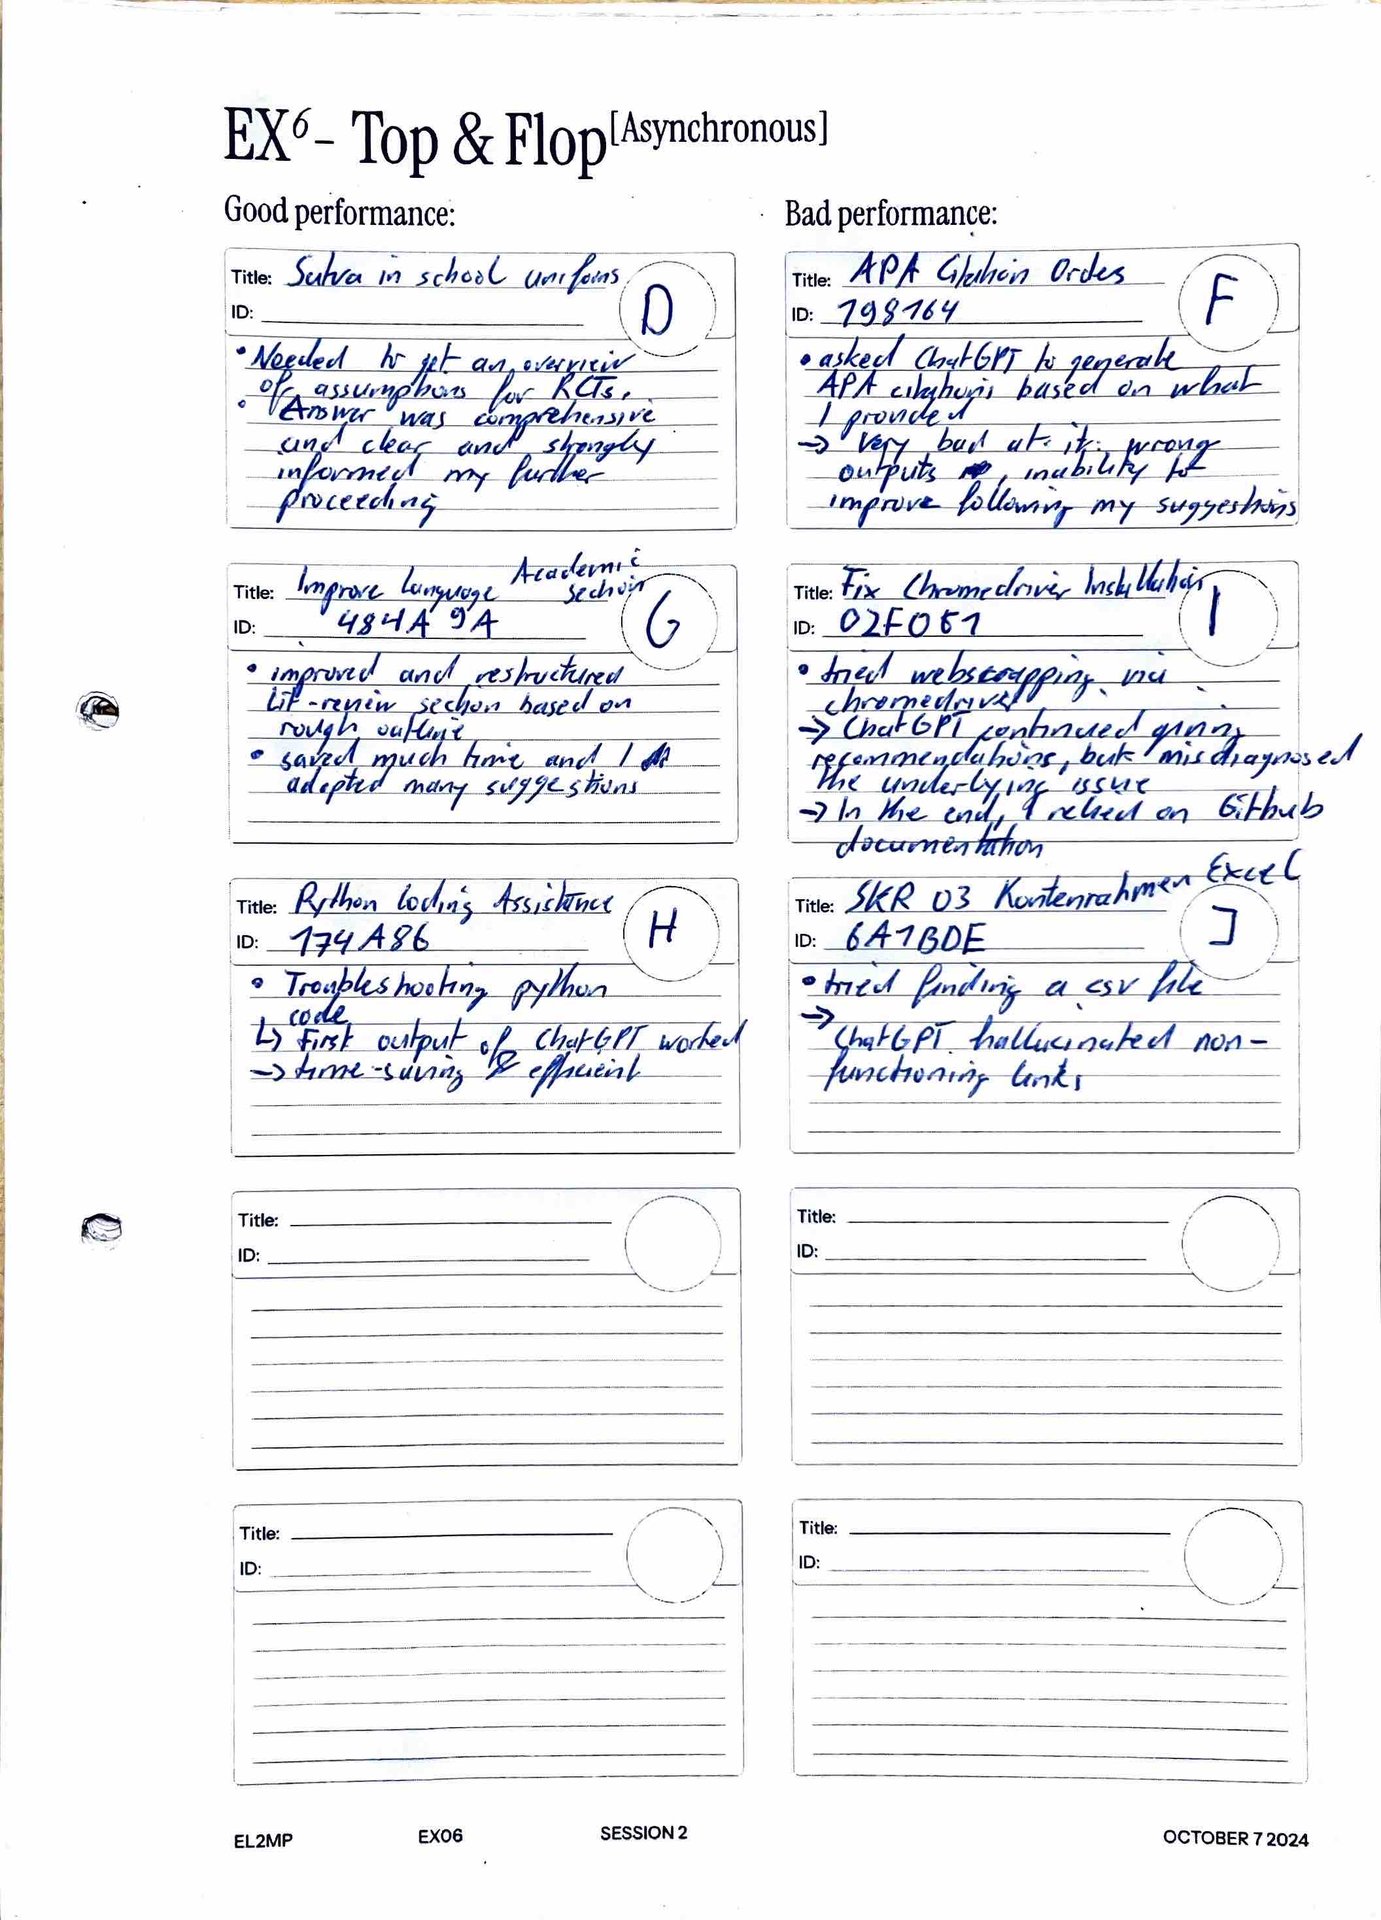 EX⁶- Top & Flop[Asynchronous]
Good performance:
Title: Sutva in school uniforms
D
ID:
• Needed to get an overview
of assumptions for RCTs.
• Answer was comprehensive
and clear and strongly
informed my further
proceeding
Title: Improve Language Academic
section
G
ID: 484A9A
• improved and restructured
Lit-review section based on
rough outline
• saved much time and I
adopted many suggestions
Title: Python Coding Assistance
H
ID: 174A86
• Troubleshooting python
code
↳ First output of ChatGPT worked
→ time-saving & efficient
Title:
ID:
Title:
ID:
Bad performance:
Title: APA Citation Order
F
ID: 198164
• asked ChatGPT to generate
APA citations based on what
I provided
→ Very bad at it: wrong
outputs, inability to
improve following my suggestions
Title: Fix Chromedriver Installation
I
ID: 02F061
• tried webscrapping via
chromedriver
→ ChatGPT continued giving
recommendations, but misdiagnosed
the underlying issue
→ In the end, I relied on Github
documentation
Title: SKR 03 Kontenrahmen Excel
J
ID: 6A1BDE
• tried finding a csv file
→
ChatGPT hallucinated non-
functioning links
Title:
ID:
Title:
ID:
EL2MP
EX06
SESSION 2
OCTOBER 7 2024